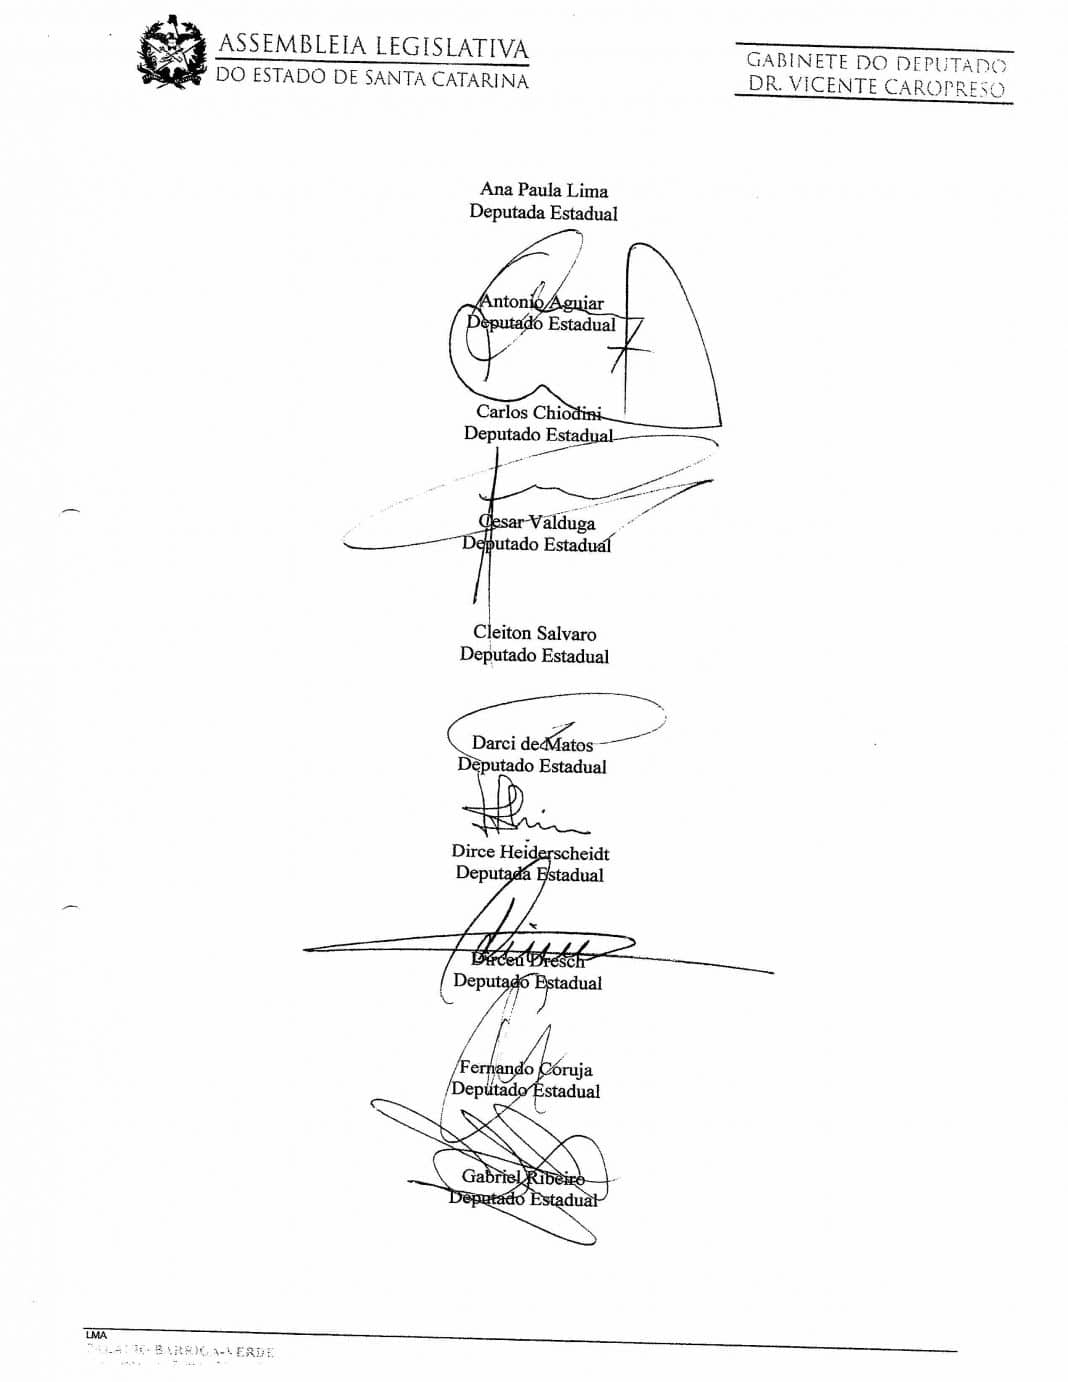 ASSEMBLEIA LEGISLATIVA
DO ESTADO DE SANTA CATARINA
GABINETE DO DEPUTADO
DR. VICENTE CAROPRESO
Ana Paula Lima
Deputada Estadual
Antonio Aguiar
Deputado Estadual
Carlos Chiodini
Deputado Estadual
Cesar Valduga
Deputado Estadual
Cleiton Salvaro
Deputado Estadual
Darci de Matos
Deputado Estadual
Dirce Heiderscheidt
Deputada Estadual
Dirceu Dresch
Deputado Estadual
Fernando Coruja
Deputado Estadual
Gabriel Ribeiro
Deputado Estadual
LMA
PALÁCIO-BARRIGA-VERDE